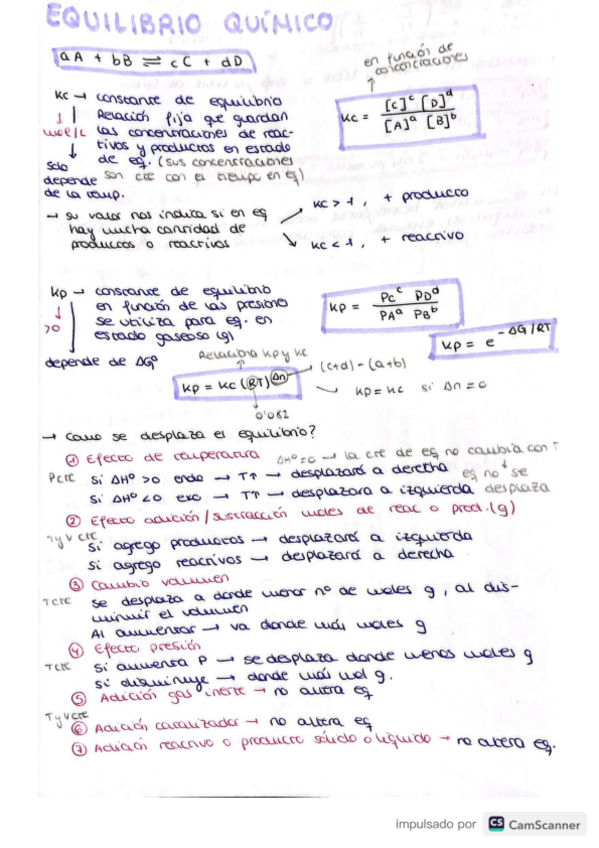 EQUILIBRIO QUÍMICO
aA + bB ⇌ cC + dD
en función de
concentraciones
Kc → constante de equilibrio
↓ Relación fija que guardan
mol/L las concentraciones de reac-
↓ tivos y productos en estado
solo de eq. (sus concentraciones
depende son cte con el tiempo en eq)
de la temp.
Kc = [C]^c [D]^d / [A]^a [B]^b
→ su valor nos indica si en eq
hay mucha cantidad de
productos o reactivos
Kc > 1, + producto
Kc < 1, + reactivo
Kp → constante de equilibrio
↓ en función de las presiones
>0 se utiliza para eq. en
estado gaseoso (g)
depende de ΔGº
Kp = PC^c PD^d / PA^a PB^b
Kp = e^-ΔG/RT
Relaciona Kp y Kc
Kp = Kc (RT)^Δn
(c+d) - (a+b)
Kp = Kc si Δn = 0
0'082
→ Como se desplaza el equilibrio?
① Efecto de temperatura ΔHº=0 → la cte de eq no cambia con T
P cte si ΔHº > 0 endo → T↑ → desplazará a derecha eq no se
si ΔHº < 0 exo → T↑ → desplazara a izquierda desplaza
② Efecto adición/sustracción moles de reac o prod. (g)
T y V cte
si agrego productos → desplazará a izquierda
si agrego reactivos → desplazará a derecha
③ Cambio volumen
T cte se desplaza a donde menor nº de moles g, al dis-
minuir el volumen
Al aumentar → va donde más moles g
④ Efecto presión
T cte si aumenta P → se desplaza donde menos moles g
si disminuye → donde más mol g.
⑤ Adición gas inerte → no altera eq
T y V cte
⑥ Adición catalizador → no altera eq
⑦ Adición reactivo o producto sólido o líquido → no altera eq.
impulsado por CS CamScanner